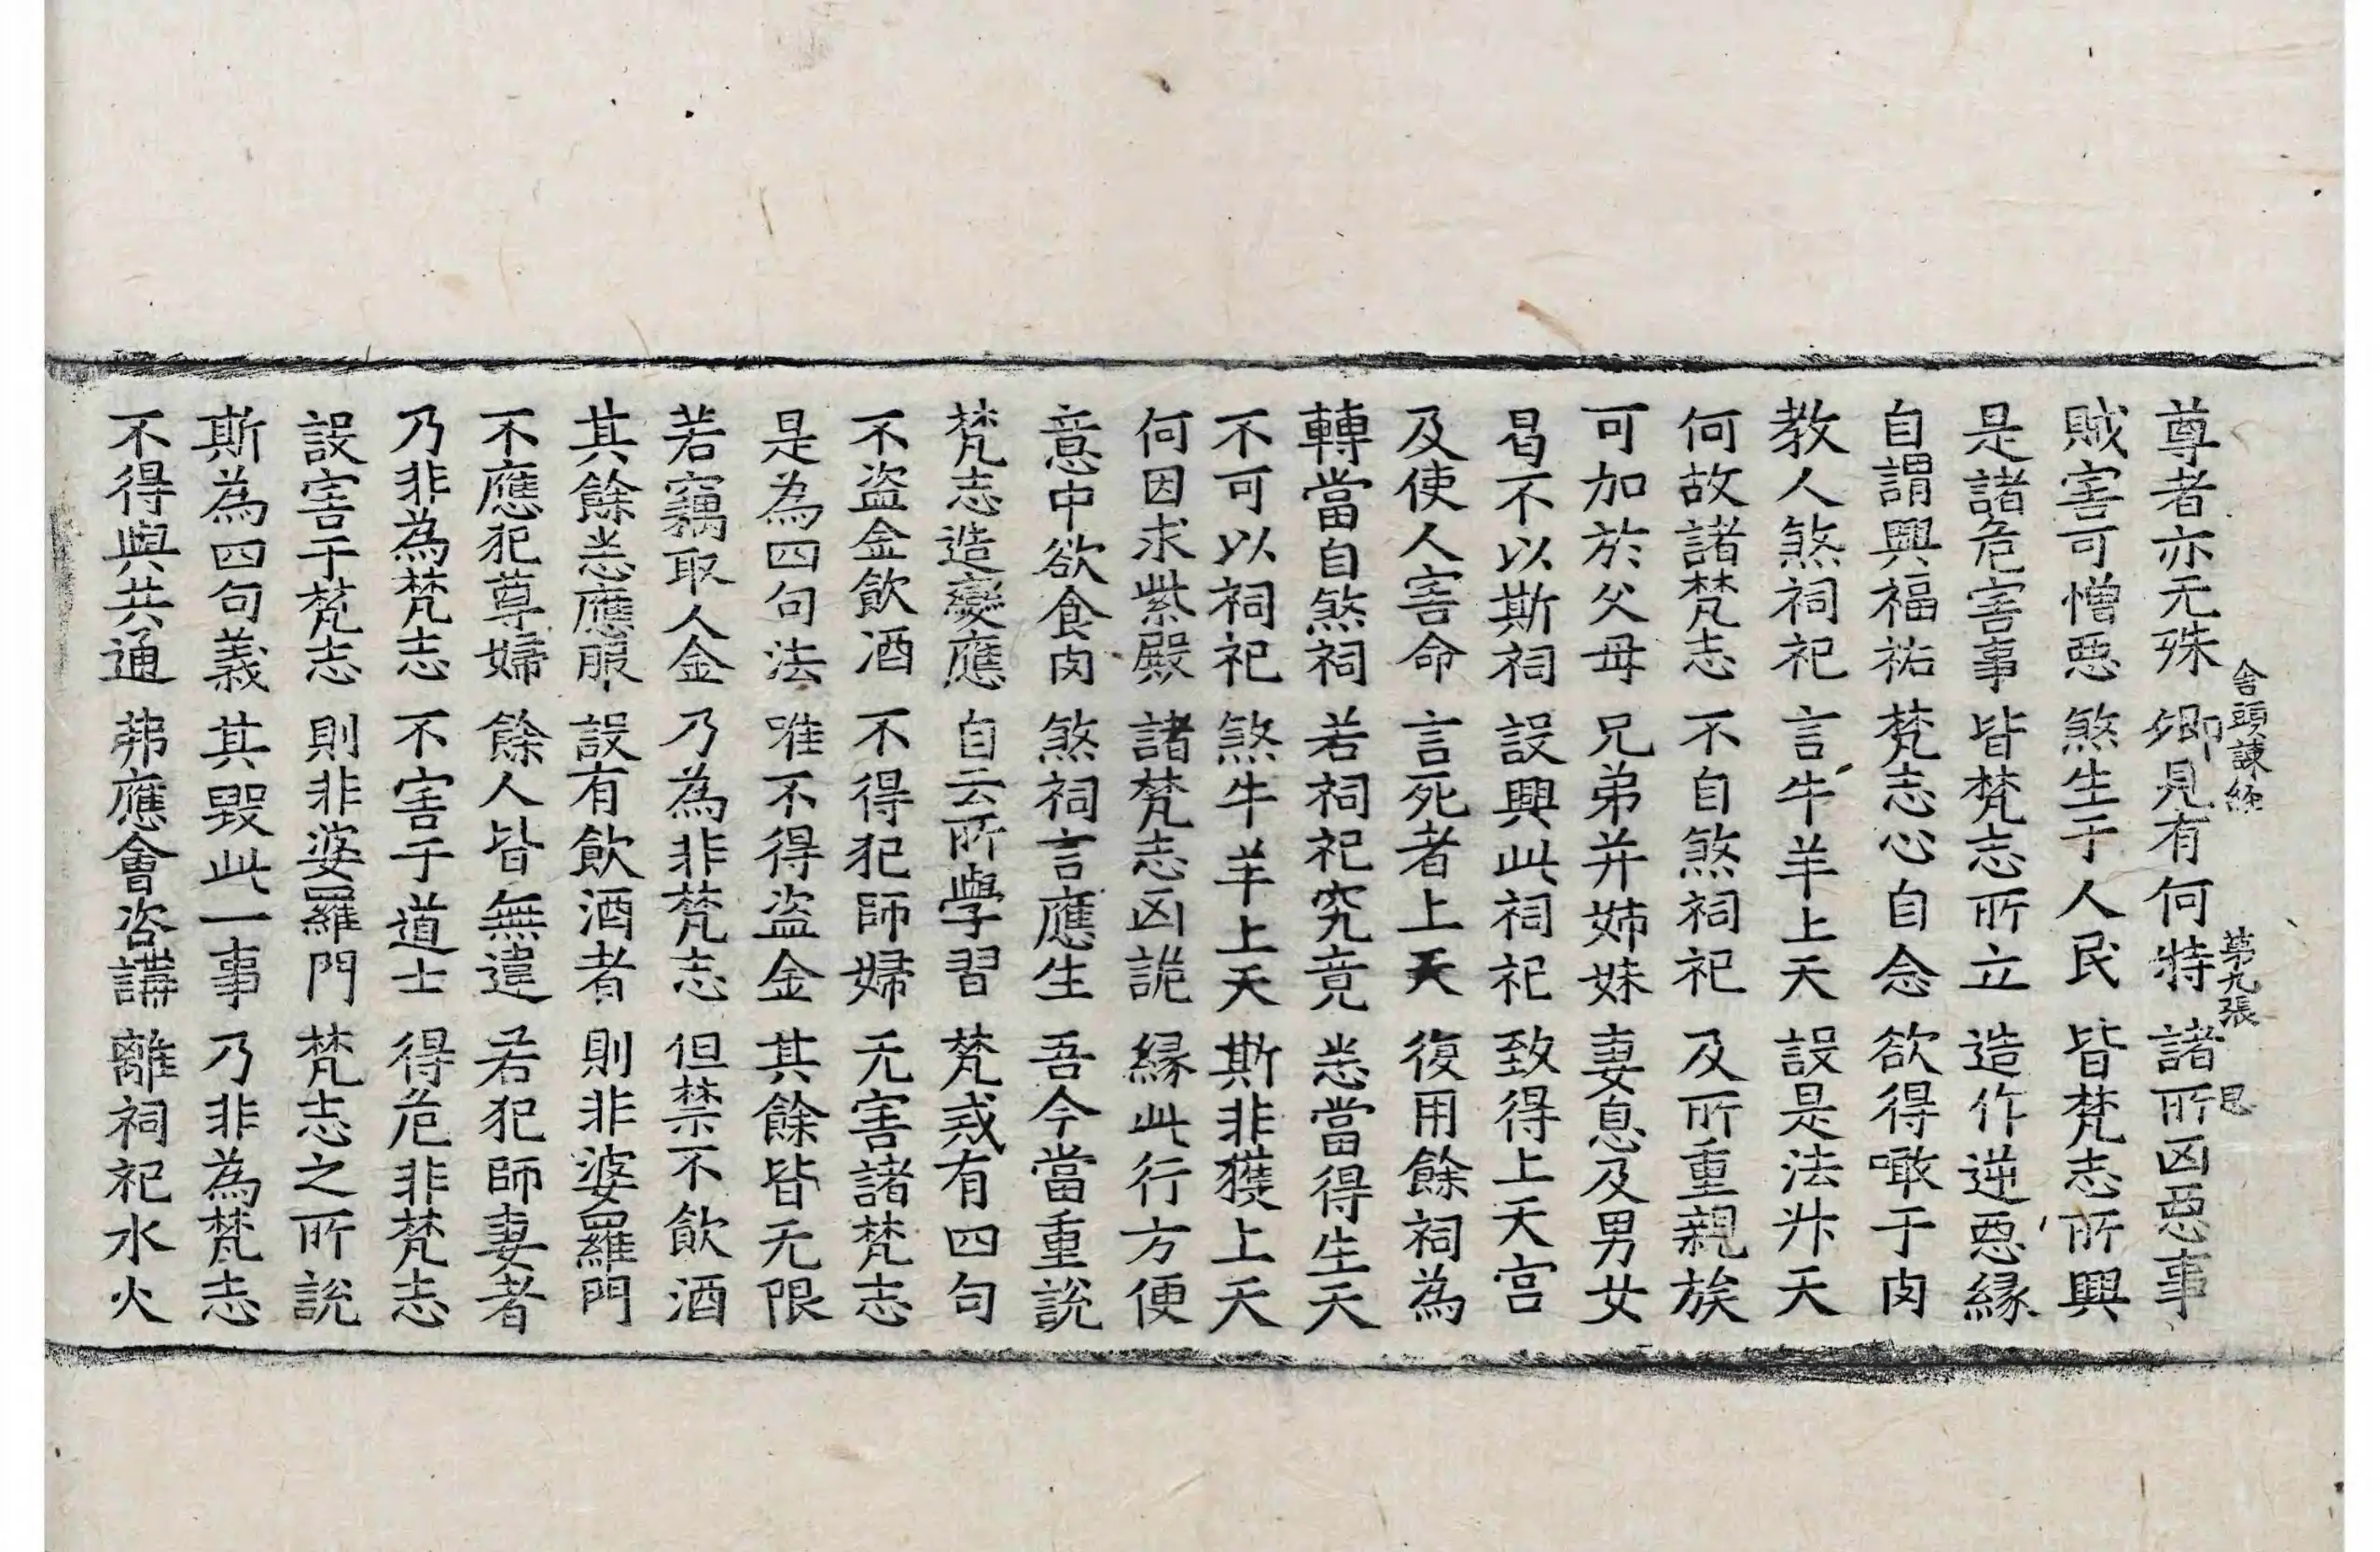 舍頭諫経 第九張 思
尊者亦无殊 卿見有何特 諸所凶惡事
賊害可憎惡 煞生于人民 皆梵志所興
是諸危害事 皆梵志所立 造作逆惡縁
自謂興福祐 梵志心自念 欲得噉于肉
教人煞祠祀 言牛羊上天 設是法升天
何故諸梵志 不自煞祠祀 及所重親族
可加於父母 兄弟并姊妹 妻息及男女
曷不以斯祠 設興此祠祀 致得上天宮
及使人害命 言死者上天 復用餘祠為
轉當自煞祠 若祠祀究竟 悉當得生天
不可以祠祀 煞牛羊上天 斯非獲上天
何因求紫殿 諸梵志凶詭 縁此行方便
意中欲食肉 煞祠言應生 吾今當重說
梵志造變應 自云所學習 梵或有四句
不盜金飲酒 不得犯師婦 无害諸梵志
是為四句法 唯不得盜金 其餘皆无限
若竊取人金 乃為非梵志 但禁不飲酒
其餘悉應服 設有飲酒者 則非婆羅門
不應犯尊婦 餘人皆無違 若犯師妻者
乃非為梵志 不害于道士 得危非梵志
設害于梵志 則非婆羅門 梵志之所說
斯為四句義 其毀此一事 乃非為梵志
不得與共通 弗應會咨講 離祠祀水火